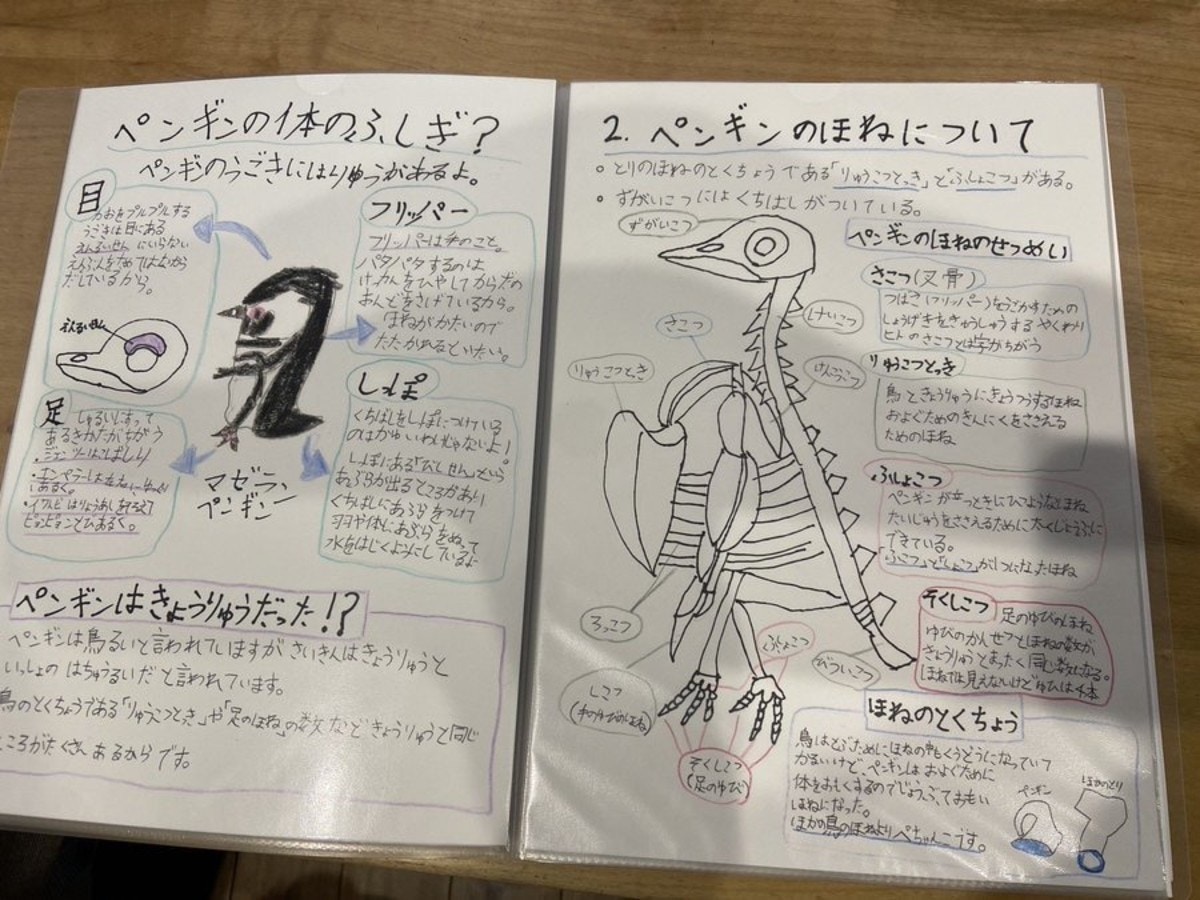 ペンギンの体のふしぎ?
ペンギのうごきにはりゆうがあるよ。
目
かおをプルプルする
うごきは目にある
えんるいせんにいらない
えんぶんをためてはなから
だしているから。
えんるいせん
フリッパー
フリッパーは手のこと。
パタパタするのは
けっかんをひやしてからだの
おんどをさげているから。
ほねがかたいので
たたかれるといたい。
足
しゅるいによって
あるきかたがちがう
・ジェンツーはこばしり
・エンペラーは
あるく。
・イワトビはりょうあしをそろえて
ピョンピョンとびあるく。
マゼラン
ペンギン
しっぽ
くちばしをしっぽにつけている
のはかゆいわけじゃないよ!
しっぽにある「びしせん」という
あぶらが出るところがあり
くちばしにあぶらをつけて
羽や体にあぶらをぬって
水をはじくようにしているよ
ペンギンはきょうりゅうだった!?
ペンギンは鳥るいと言われていますがさいきんはきょうりゅうと
いっしょのはちゅうるいだと言われています。
鳥のとくちょうである「りゅうこつとっき」や「足のほね」の数などきょうりゅうと同じ
ところがたくさんあるからです。
2. ペンギンのほねについて
○ とりのほねのとくちょうである「りゅうこつとっき」と「ふしょこつ」がある。
○ ずがいこつにはくちばしがついている。
ずがいこつ
けいこつ
さこつ
けんこうこつ
りゅうこつとっき
ろっこつ
ふしょこつ
びついこつ
しこつ
そくしこつ
(足のゆび)
ペンギンのほねのせつめい
さこつ(叉骨)
つばさ(フリッパー)をうごかすための
しょうげきをきゅうしゅうするやくわり
ヒトのさこつとは字がちがう
りゅうこつとっき
鳥ときょうりゅうにきょうつうするほね
およぐためのきんにくをささえる
ためのほね
ふしょこつ
ペンギンが立つときにひつようなほね
たいじゅうをささえるために大くじょうぶに
できている。
「ふこつ」と「しょこつ」が1つになったほね
そくしこつ
足のゆびのほね
ゆびのかんせつとほねの数が
きょうりゅうとまったく同じ数になる。
ほねでは見えないけどゆびは4本
ほねのとくちょう
鳥はとぶためにほねの中もくうどうになっていて
かるいけど、ペンギンはおよぐために
体をおもくするのでじょうぶでおもい
ほねになった。
ほかの鳥のほねよりぺちゃんこです。
ペンギン
ほかのとり